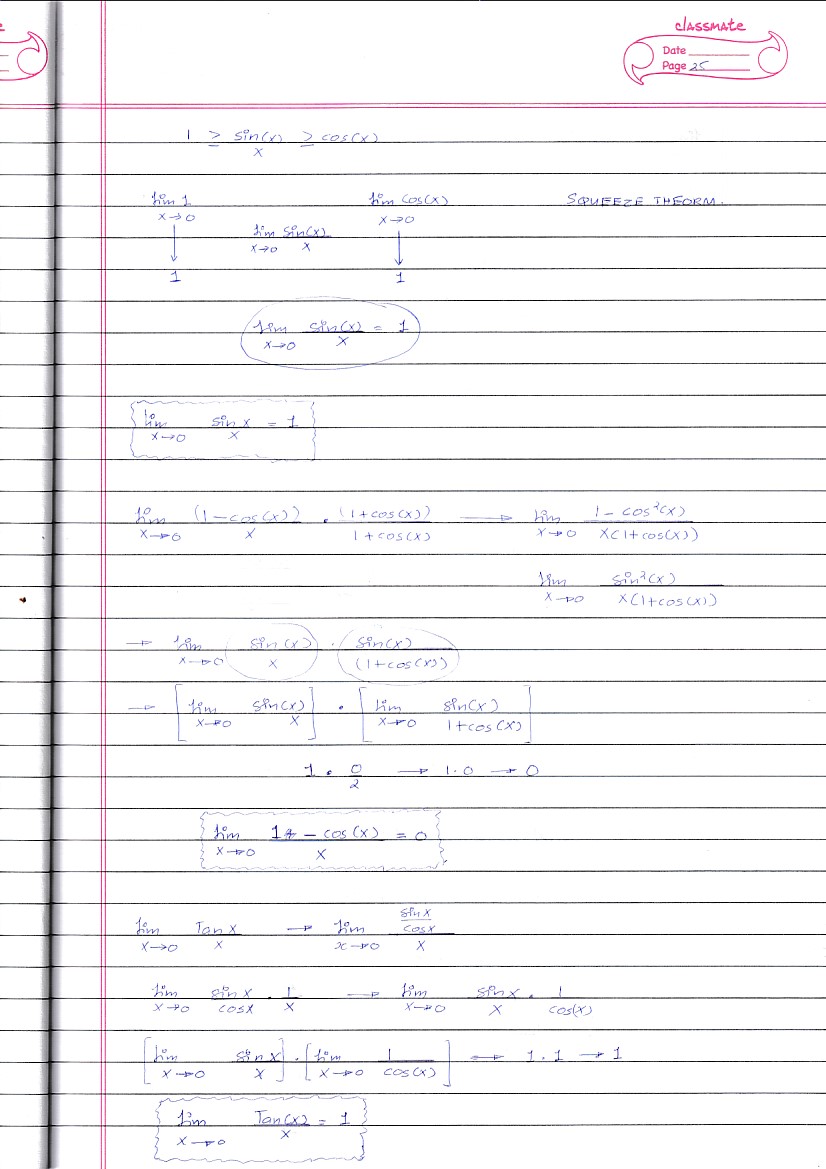 classmate
Date
Page 25
1 ≥ sin(x)/x ≥ cos(x)
lim x→0 1 lim x→0 cos(x) SQUEEZE THEORM.
lim x→0 sin(x)/x
1 1
lim x→0 sin(x)/x = 1
lim x→0 sin x/x = 1
lim x→0 (1-cos(x))/x · (1+cos(x))/1+cos(x) → lim x→0 1-cos²(x)/x(1+cos(x))
lim x→0 sin²(x)/x(1+cos(x))
→ lim x→0 sin(x)/x · sin(x)/(1+cos(x))
→ [lim x→0 sin(x)/x] · [lim x→0 sin(x)/1+cos(x)]
1 · 0/2 → 1·0 → 0
lim x→0 1 - cos(x)/x = 0
lim x→0 Tan x/x → lim x→0 sin x/cos x/x
lim x→0 sin x/cos x · 1/x → lim x→0 sin x/x · 1/cos(x)
[lim x→0 sin x/x] · [lim x→0 1/cos(x)] → 1·1 → 1
lim x→0 Tan(x)/x = 1